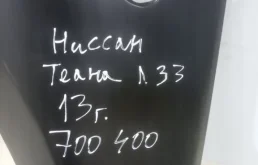 Ниссан
Теана Л33
13г.
700 400